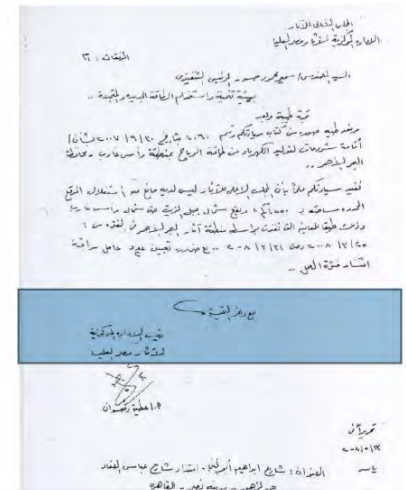 المجلس الأعلى للآثار
الإدارة المركزية لآثار مصر العليا
المرفقات : ٣١
السيد المهندس / سمير محمود حسن - الرئيس التنفيذى
هيئة تنمية واستخدام الطاقة الجديدة والمتجددة ..
تحية طيبة وبعد
كتاب سيادتكم رقم ٢٠٦٠ بتاريخ ٢٠٠٧/٩/٣٠ بشأن
إقامة مشروعات لتوليد الكهرباء من طاقة الرياح بمنطقة رأس غارب محافظة
البحر الأحمر ..
نفيد سيادتكم علماً بأن المجلس الأعلى للآثار ليس لديه مانع من استغلال الموقع
المحدد مساحته شمال جبل الزيت شمال رأس غارب
وذلك طبقاً للمعاينة التى تمت بواسطة منطقة آثار البحر الأحمر فى الفترة من :
٢٠٠٨/١٢/٢٥ وحتى ٢٠٠٨/١٢/٣١ .. مع ضرورة تعيين عدد عامل مراقبة
أثناء فترة العمل ..
مع وافر التحية
الإدارة المركزية
لآثار مصر العليا
عطية رضوان
تحريراً فى
العنوان : شارع ابراهيم أبو النجا - امتداد شارع عباس العقاد
مدينة نصر - القاهرة